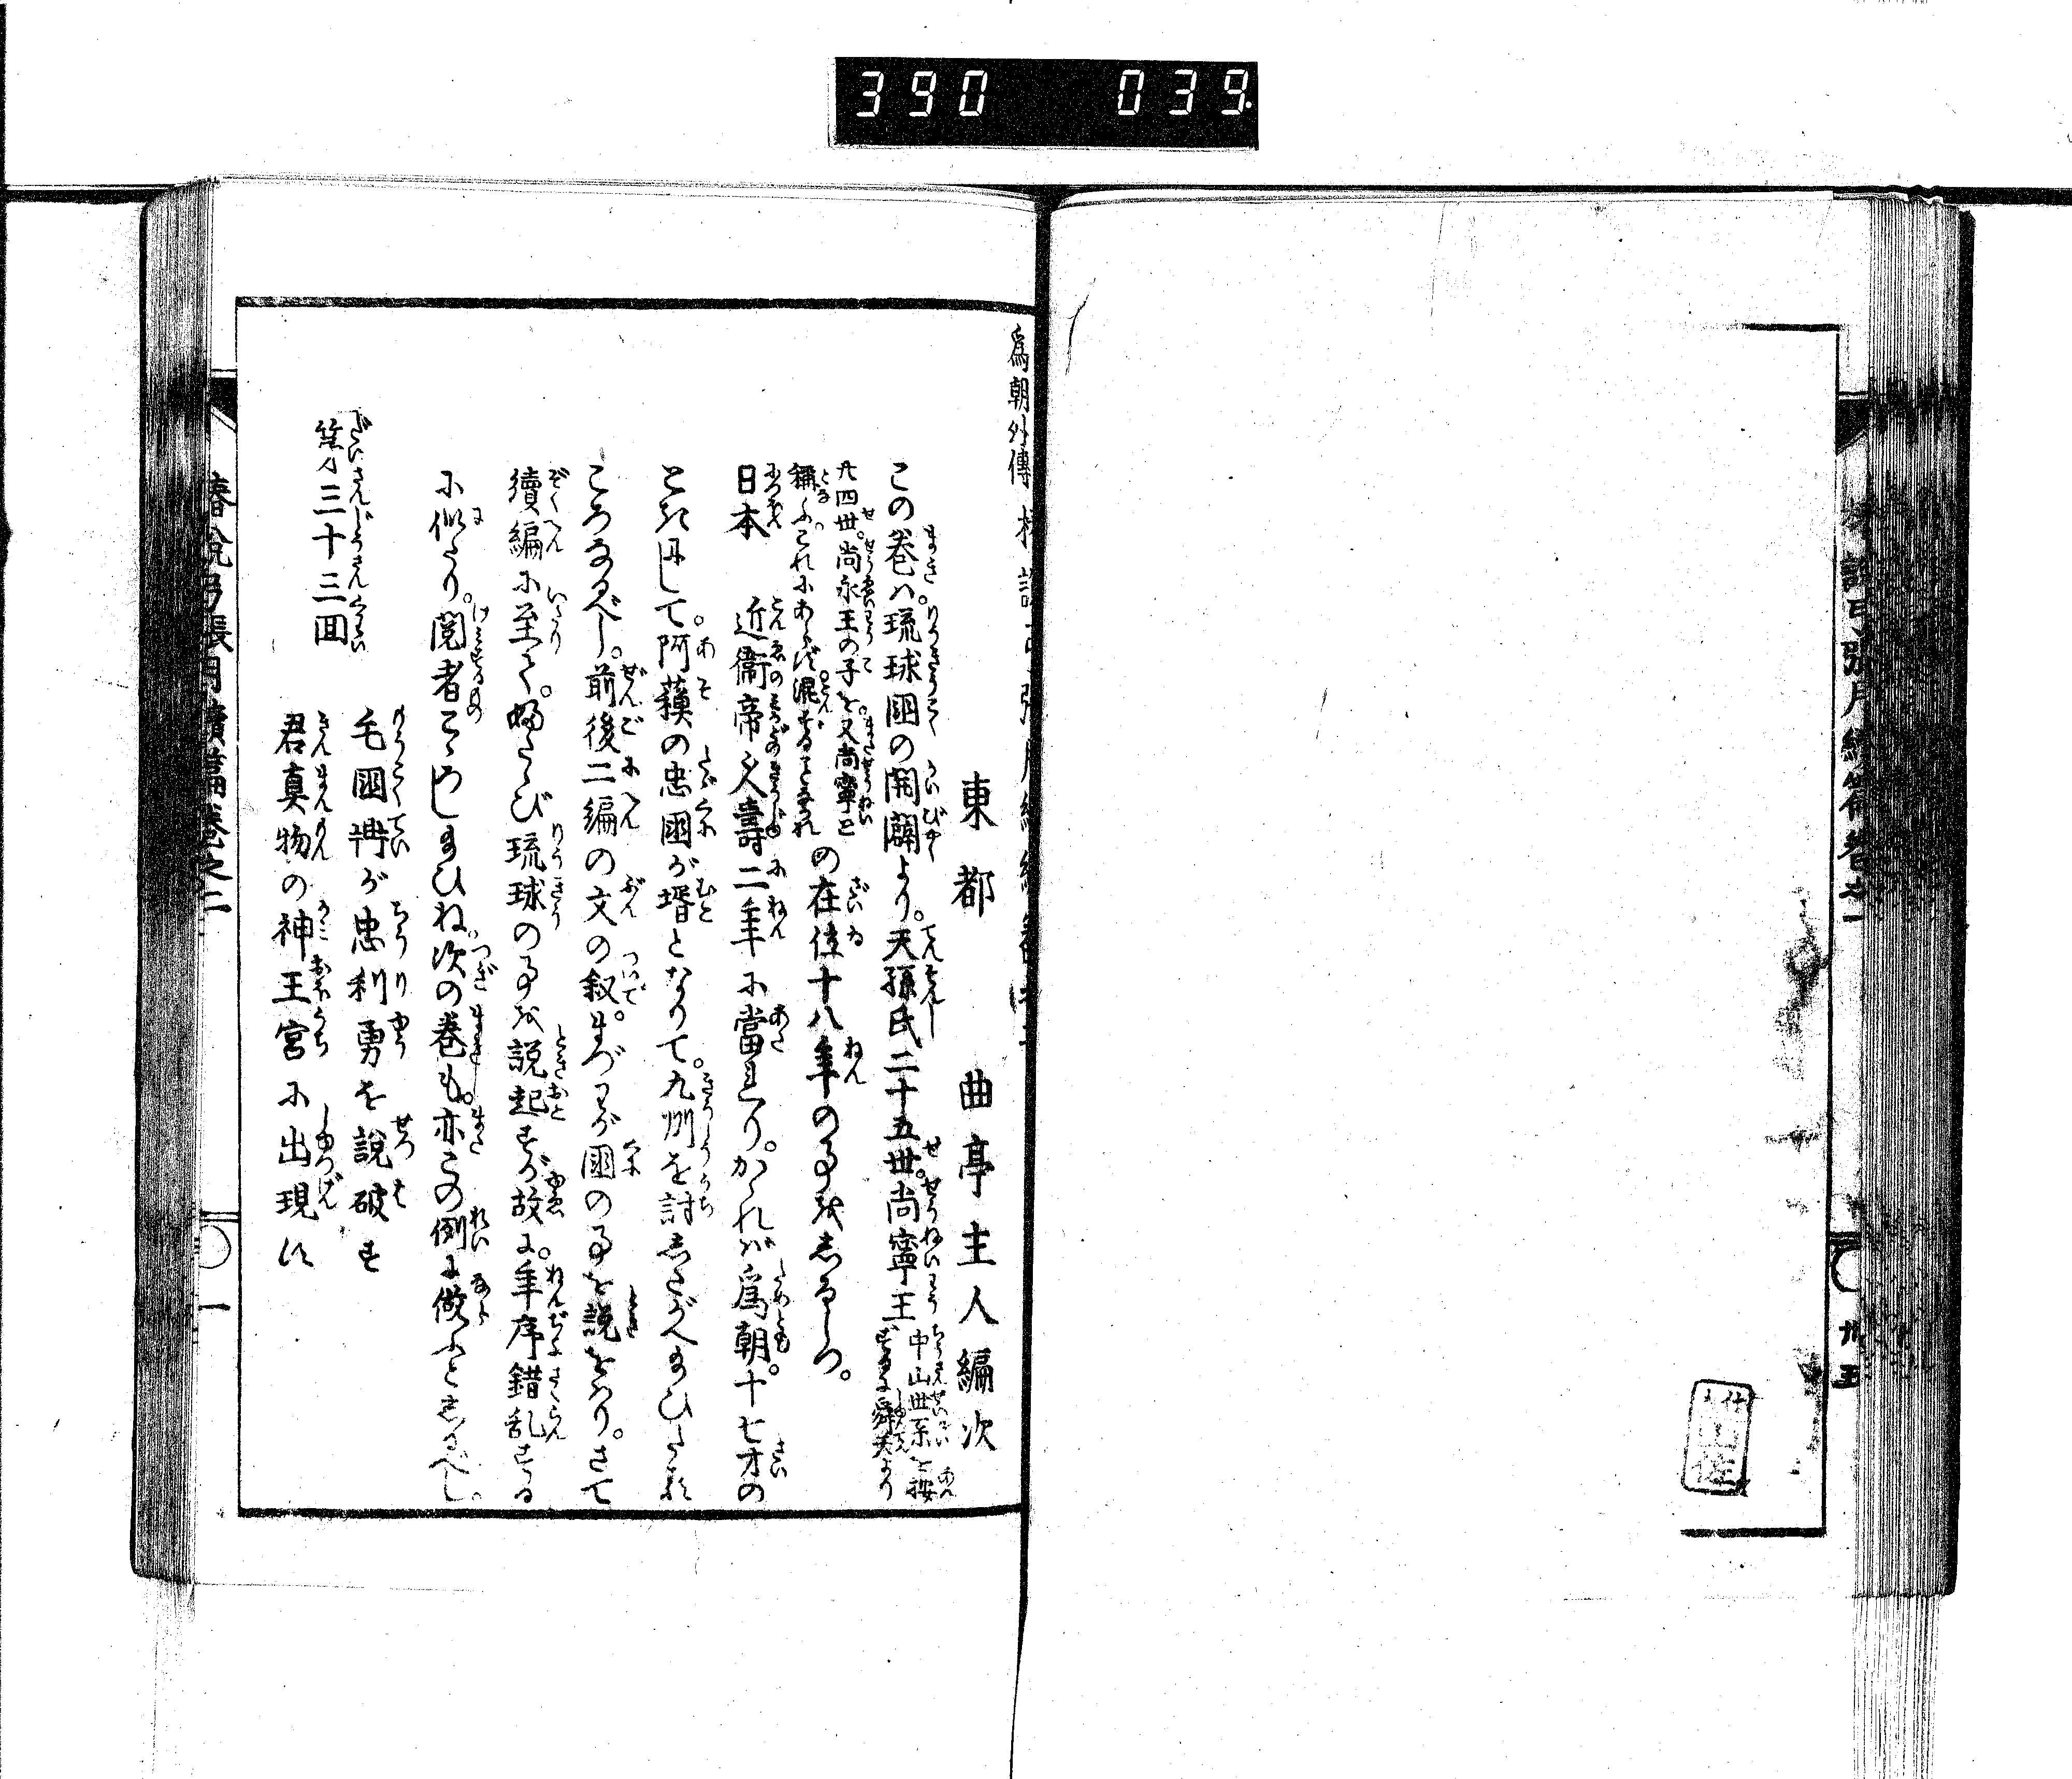 390 039
爲朝外傳椿説弓張月續編卷之二
東都 曲亭主人編次
この巻ハ。琉球國の開闢より。天孫氏二十五世。尚寧王
中山世系を按
ずるに舜天より
廿四世。尚永王の子を。又尚寧と
稱ふ。これにあらず混ずることなかれ
の在位十八年の事をしるしつ。
日本 近衞帝久壽二年に當れり。かゝれバ爲朝。十七才の
ときにして。阿蘓の忠國が壻となりて。九州を討したがへ給ひたる
ころなるべし。前後二編の文の叙。まづわが國の事を説をハり。さて
續編に至て。ふたゝび琉球の事を説起すが故に。年序錯乱する
に似たり。閲者こゝろし給ひね。次の巻も。亦この例に倣ふとしるべし。
第三十三回
毛國鼎が忠利勇を説破す
君真物の神王宮に出現す
椿説弓張月續編卷之二
一